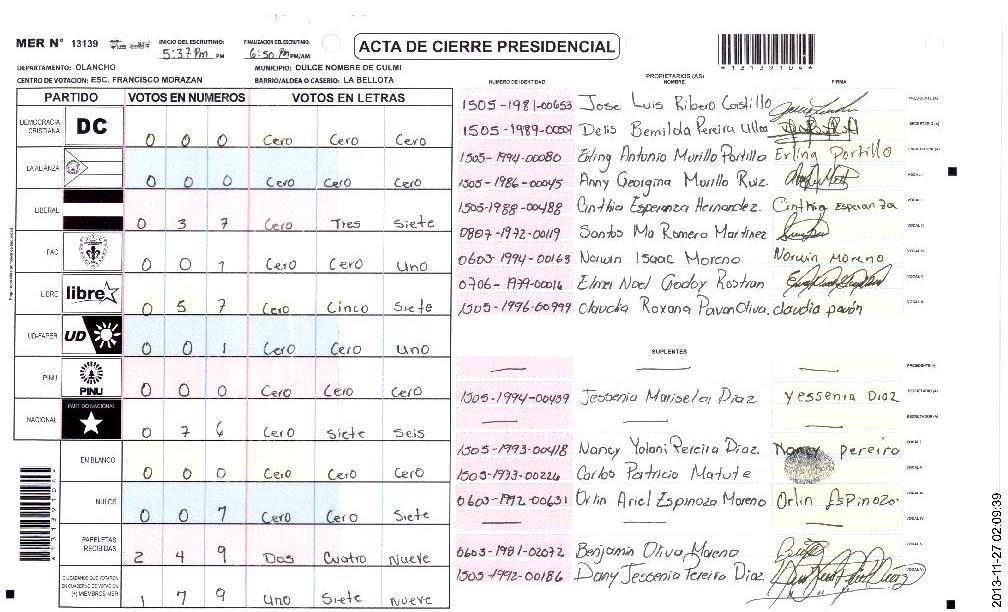 MER N° 13139 INICIO DEL ESCRUTINIO: 5:37 Pm PM FINALIZACION DEL ESCRUTINIO: 6:50 Pm PM/AM
ACTA DE CIERRE PRESIDENCIAL
*13139104*
DEPARTAMENTO: OLANCHO MUNICIPIO: DULCE NOMBRE DE CULMI
CENTRO DE VOTACION: ESC. FRANCISCO MORAZAN BARRIO/ALDEA O CASERIO: LA BELLOTA
PARTIDO VOTOS EN NUMEROS VOTOS EN LETRAS
DEMOCRACIA CRISTIANA DC 0 0 0 Cero Cero Cero
LA ALIANZA 0 0 0 Cero Cero Cero
LIBERAL 0 3 7 Cero Tres Siete
PAC 0 0 1 Cero Cero uno
LIBRE libre 0 5 7 Cero Cinco Siete
UD-FAPER UD 0 0 1 Cero Cero uno
PINU PINU 0 0 0 Cero Cero Cero
NACIONAL PARTIDO NACIONAL 0 7 6 Cero Siete Seis
EN BLANCO 0 0 0 Cero Cero Cero
NULOS 0 0 7 Cero Cero Siete
PAPELETAS RECIBIDAS 2 4 9 Dos Cuatro Nueve
CIUDADANOS QUE VOTARON EN CUADERNO DE VOTACION (+) MIEMBROS MER 1 7 9 uno Siete nueve
NUMERO DE IDENTIDAD PROPIETARIOS (AS) NOMBRE FIRMA
1505-1981-00653 Jose Luis Ribero Castillo PRESIDENTE (A)
1505-1989-00509 Delis Bemilda Pereira Ulloa SECRETARIO (A)
1505-1994-00080 Erling Antonio Murillo Portillo Erling Portillo ESCRUTADOR (A)
1505-1986-00045 Anny Georgina Murillo Ruiz. VOCAL I
1505-1988-00488 Cinthia Esperanza Hernandez. Cinthia Esperanza VOCAL II
0807-1972-00119 Santos Ma Romero Martinez VOCAL III
0603-1994-00163 Norwin Isaac Moreno Norwin Moreno VOCAL IV
0706-1979-00016 Elmer Noel Godoy Rostran VOCAL V
1505-1996-00999 Claudia Roxana Pavon Oliva. claudia pavón
SUPLENTES
PRESIDENTE (A)
1505-1994-00439 Jessenia Marisela Diaz yessenia Diaz SECRETARIO (A)
ESCRUTADOR (A)
1505-1993-00418 Nancy Yolani Pereira Diaz. Nancy pereira VOCAL I
1505-1973-00226 Carlos Patricio Matute VOCAL II
0603-1992-00631 Orlin Ariel Espinoza Moreno Orlin Espinoza VOCAL III
VOCAL IV
0603-1981-02072 Benjamin Oliva Moreno VOCAL V
1505-1992-00186 Dany Jessenia Pereira Diaz.
*13139104*
2013-11-27 02:09:39